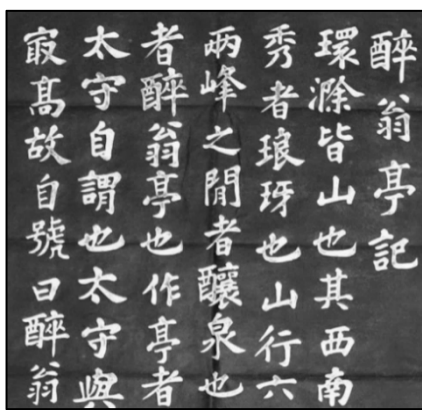 醉翁亭記
環滁皆山也其西南
秀者琅玡也山行六
兩峰之閒者釀泉也
者醉翁亭也作亭者
太守自謂也太守與
㝡髙故自號曰醉翁